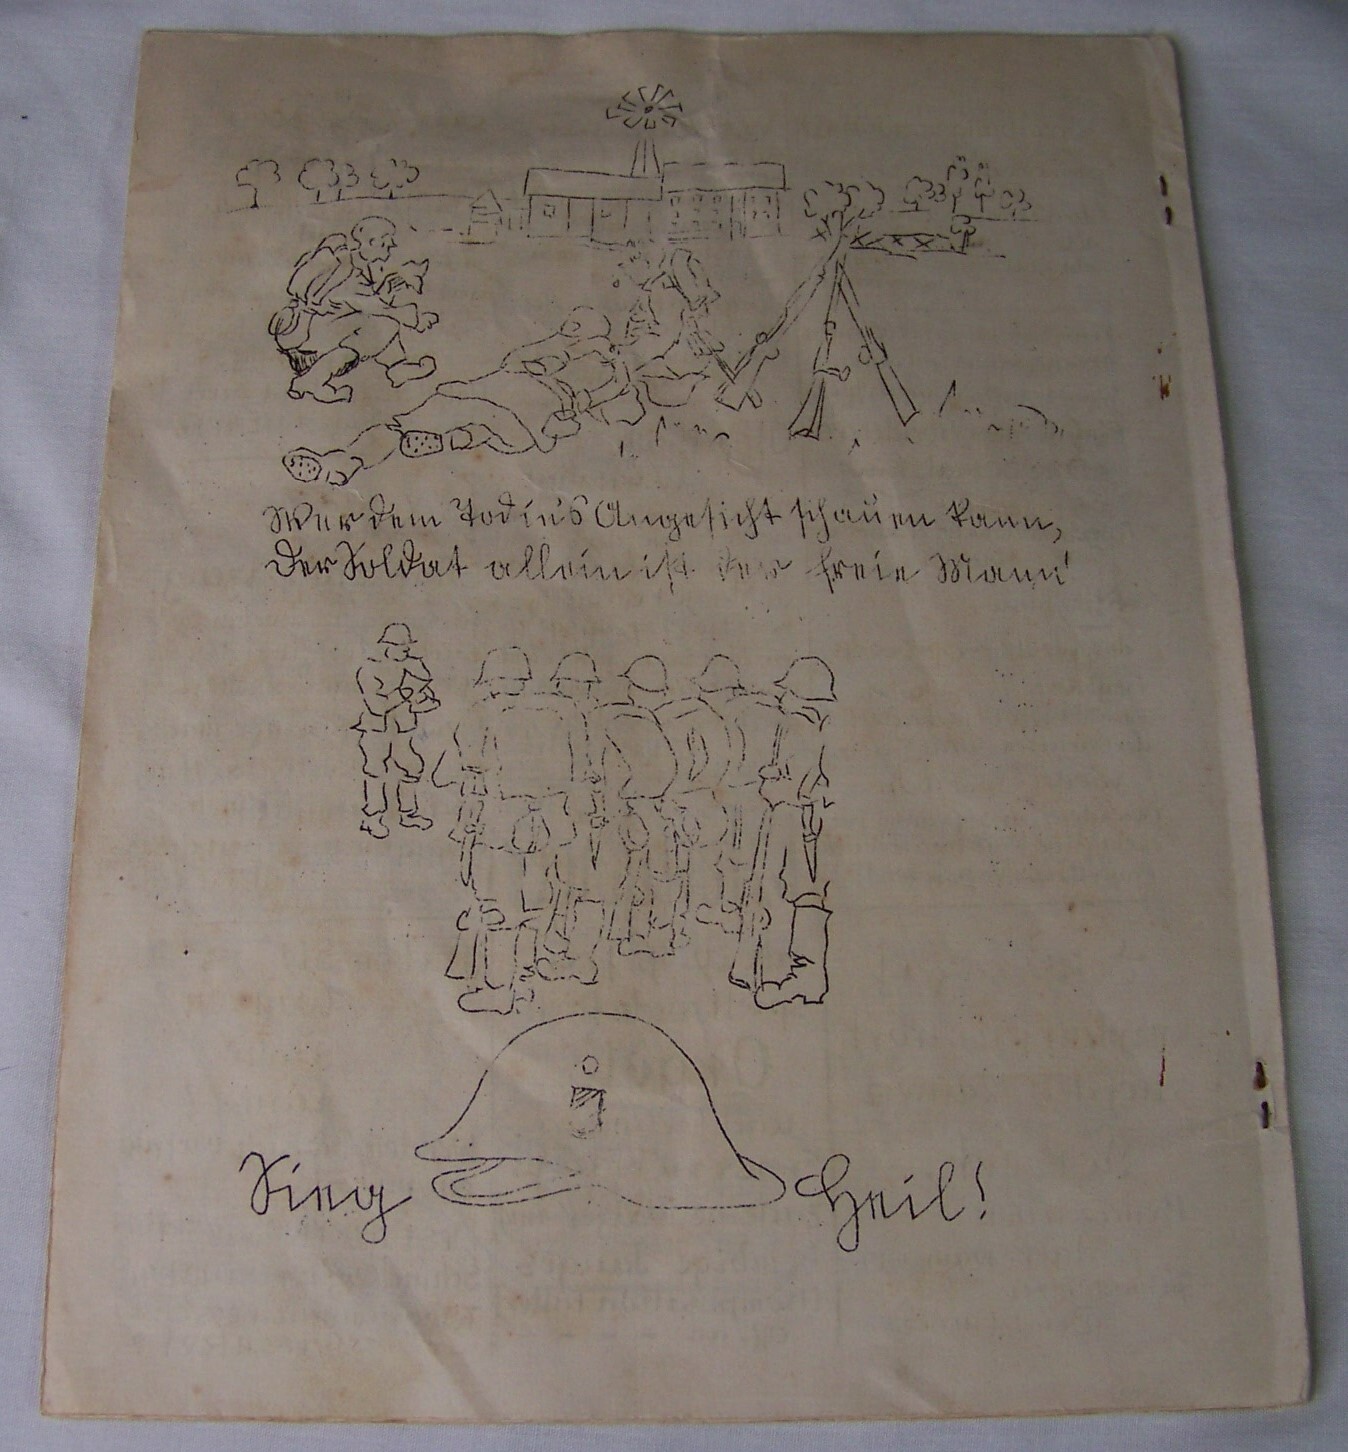 Wer dem Tod ins Angesicht schauen kann,
Der Soldat allein ist der freie Mann!
Sieg Heil!